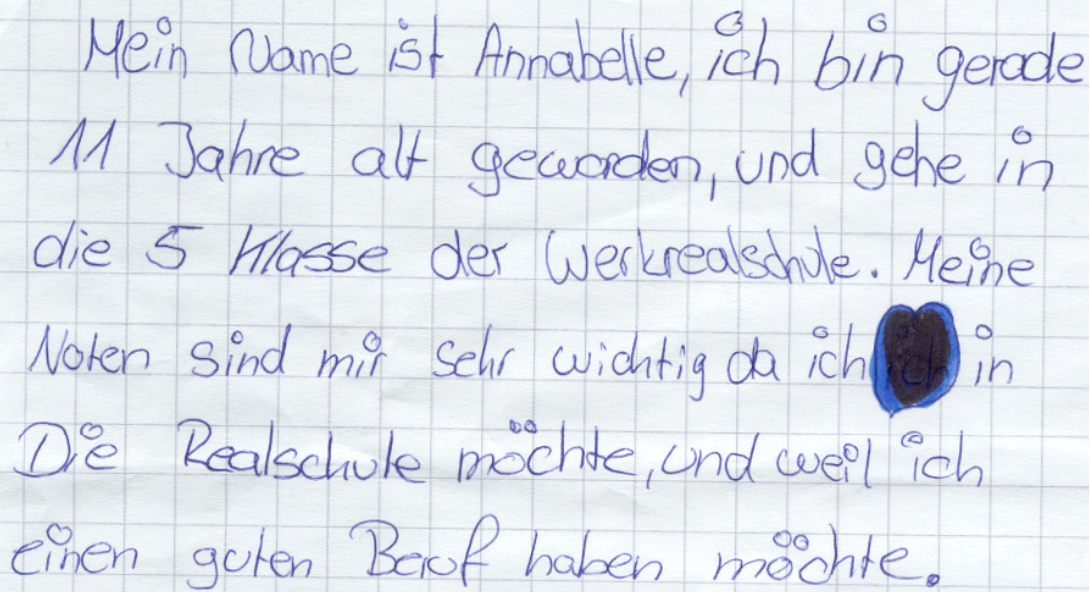 Mein Name ist Annabelle, ich bin gerade
11 Jahre alt geworden, und gehe in
die 5 Klasse der Werkrealschule. Meine
Noten sind mir sehr wichtig da ich in
Die Realschule möchte, und weil ich
einen guten Beruf haben möchte.